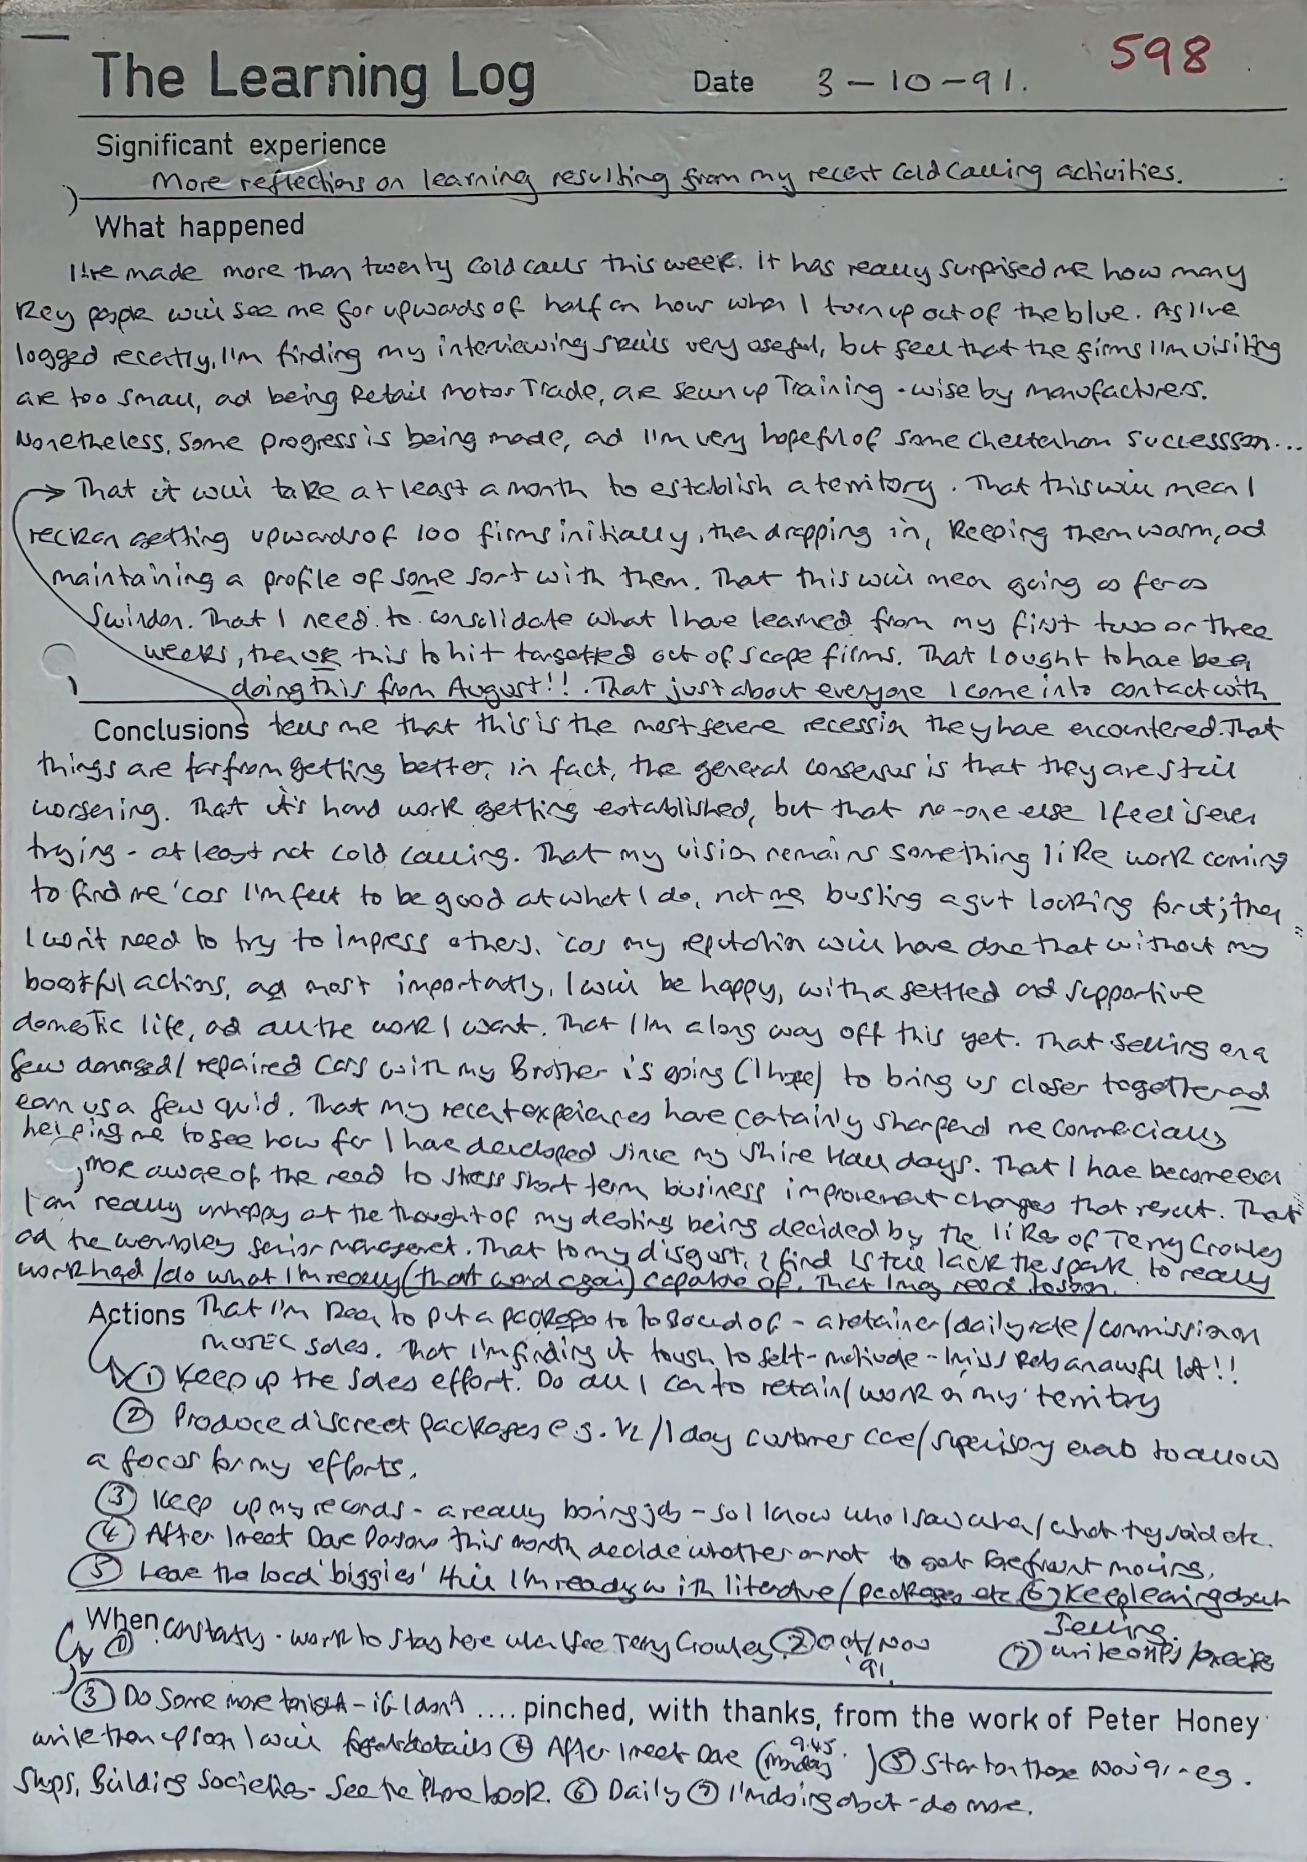 598
The Learning Log Date 3-10-91.
Significant experience
More reflections on learning resulting from my recent cold calling activities.
What happened
I've made more than twenty cold calls this week. It has really surprised me how many
key people will see me for upwards of half an hour when I turn up out of the blue. As I've
logged recently, I'm finding my interviewing skills very useful, but feel that the firms I'm visiting
are too small, ad being Retail Motor Trade, are sewn up Training-wise by manufacturers.
Nonetheless, some progress is being made, ad I'm very hopeful of some Cheltenham success soon...
That it will take at least a month to establish a territory. That this will mean I
reckon getting upwards of 100 firms initially, then dropping in, keeping them warm, ad
maintaining a profile of some sort with them. That this will mean going as far as
Swindon. That I need to consolidate what I have learned from my first two or three
weeks, then use this to hit targetted out of scope firms. That I ought to have been
doing this from August!! That just about everyone I come into contact with
Conclusions tells me that this is the most severe recession they have encountered. That
things are far from getting better, in fact, the general consensus is that they are still
worsening. That it's hard work getting established, but that no-one else I feel is even
trying - at least not cold calling. That my vision remains something like work coming
to find me 'cos I'm felt to be good at what I do, not me busting a gut looking for it; then
I won't need to try to impress others, 'cos my reputation will have done that without my
boastful actions, ad most importantly, I will be happy, with a settled ad supportive
domestic life, ad all the work I want. That I'm a long way off this yet. That selling on a
few damaged/repaired cars with my Brother is going (I hope) to bring us closer together ad
earn us a few quid. That my recent experiences have certainly sharpened me commercially
helping me to see how far I have developed since my Shire Hall days. That I have become even
more aware of the need to stress short term business improvement changes that result. That
I am really unhappy at the thought of my destiny being decided by the likes of Terry Crowley
ad the Wembley senior management. That to my disgust, I find I still lack the spark to really
work hard/do what I'm really (that word again) capable of. That I may need to
Actions That I'm keen to put a package to - a retainer/daily rate/commission on
MOTEC sales. That I'm finding it tough to self-motivate - I miss Rob an awful lot!!
① Keep up the sales effort. Do all I can to retain/work on my territory
② Produce discreet packages e.g. ½/1 day customer care/supervisory to allow
a focus for my efforts.
③ Keep up my records - a really boring job - so I know who I saw when/what they said etc.
④ After I meet Dave Parsons this month decide whether or not to get moving.
⑤ Leave the local 'biggies' till I'm ready with literature/packages etc ⑥ Keep learning about
selling.
When ① constantly - work to stay here when I see Terry Crowley ② Oct/Nov
91.
⑦ write
③ Do some more tonight - if I don't .... pinched, with thanks, from the work of Peter Honey
write them up soon I will forget details ④ After I meet Dave (Monday 9.45.) ⑤ Start on those Nov 91 - eg.
Shops, Building Societies - see the Phone book. ⑥ Daily ⑦ I'm doing about - do more.